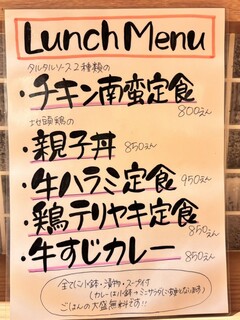 Lunch Menu
タルタルソース2種類の
・チキン南蛮定食
800えん
地頭鶏の
・親子丼 850えん
・牛ハラミ定食 950えん
・鶏テリヤキ定食
850えん
・牛すじカレー 850えん
全てに小鉢・漬物・スープ付
(カレーは小鉢→ミニサラダに変更となります)
ごはんの大盛無料です!!